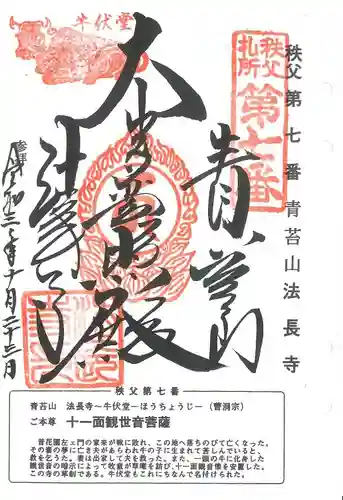 牛伏堂
秩父
札所
第七番
秩父第七番青苔山法長寺
奉拝
令和三年十月二十三日
大悲殿
秩父第七番
青苔山 法長寺～牛伏堂―ほうちょうじ―(曹洞宗)
ご本尊 十一面観世音菩薩
昔花園左ェ門の家来が戦に敗れ、この地へ落ちのびて亡くなった。
その妻の夢に亡き夫があらわれ牛の子に生まれて苦しんでいると、
救を乞うた。妻は出家して夫を救った。また、一頭の牛に化身した
観世音の暗示によって牧童が草庵を結び、十一面観音像を安置した。
この寺の草創である。牛伏堂もこれにちなんで名付けられた。